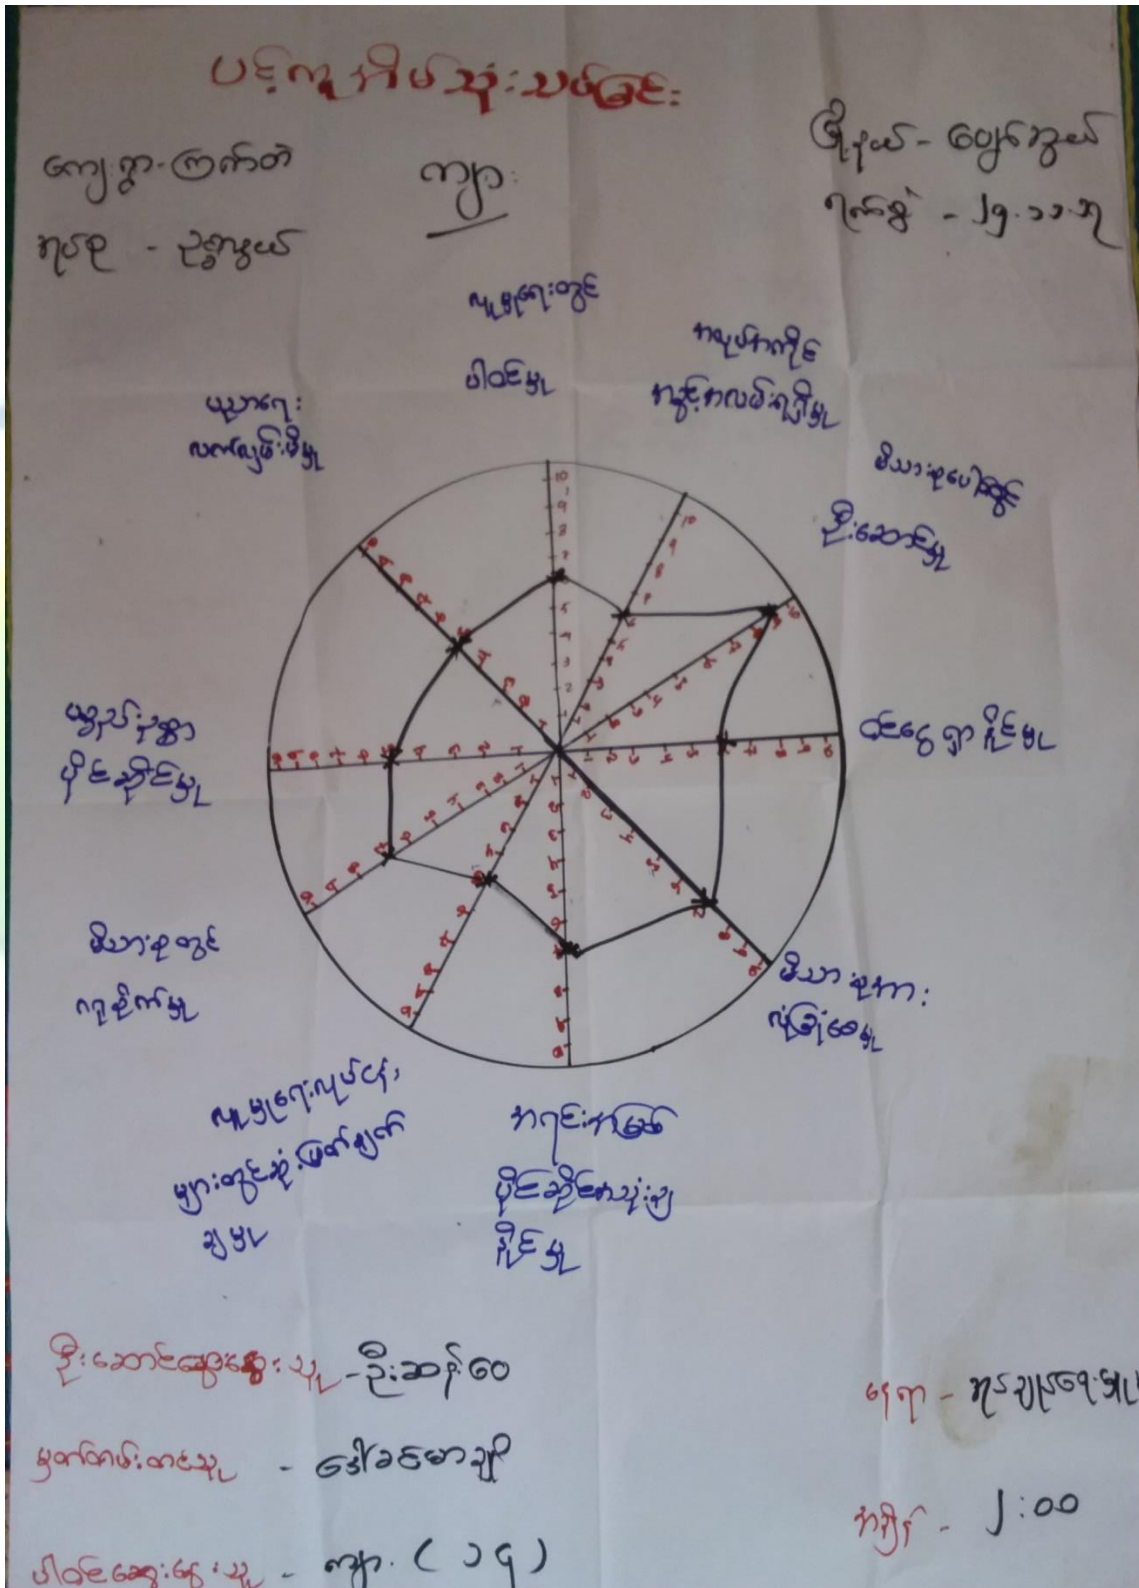 ပင့်ကူအိမ်သုံးသပ်ခြင်း
ကျေးရွာ - ကြက်တဲ
ကျား
မြို့နယ် - 
အုပ်စု - 
ရက်စွဲ - ၂၅.၁၁.၁၇
လူမှုရေးတွင်
ပါဝင်မှု
အလုပ်အကိုင်
အခွင့်အလမ်းရရှိမှု
မိသားစုပေါ်တွင်
ဦးဆောင်မှု
ဝင်ငွေရှာနိုင်မှု
မိသားစုအား
လုံခြုံစေမှု
အရင်းအမြစ်
ပိုင်ဆိုင်အသုံးချ
နိုင်မှု
လူမှုရေးလုပ်ငန်း
များတွင်ဆုံးဖြတ်ချက်
ချမှု
မိသားစုတွင်
ဂရုစိုက်မှု
ပစ္စည်းဥစ္စာ
ပိုင်ဆိုင်မှု
ပညာရေး
လက်လှမ်းမီမှု
1 2 3 4 5 6 7 8 9 10
ဦးဆောင်ဆွေးနွေးသူ - ဦးဆန်းဝေ
မှတ်တမ်းတင်သူ - ဒေါ်ခင်မာချို
ပါဝင်ဆွေးနွေးသူ - ကျား (၁၄)
နေရာ -
အချိန် - ၂:၀၀